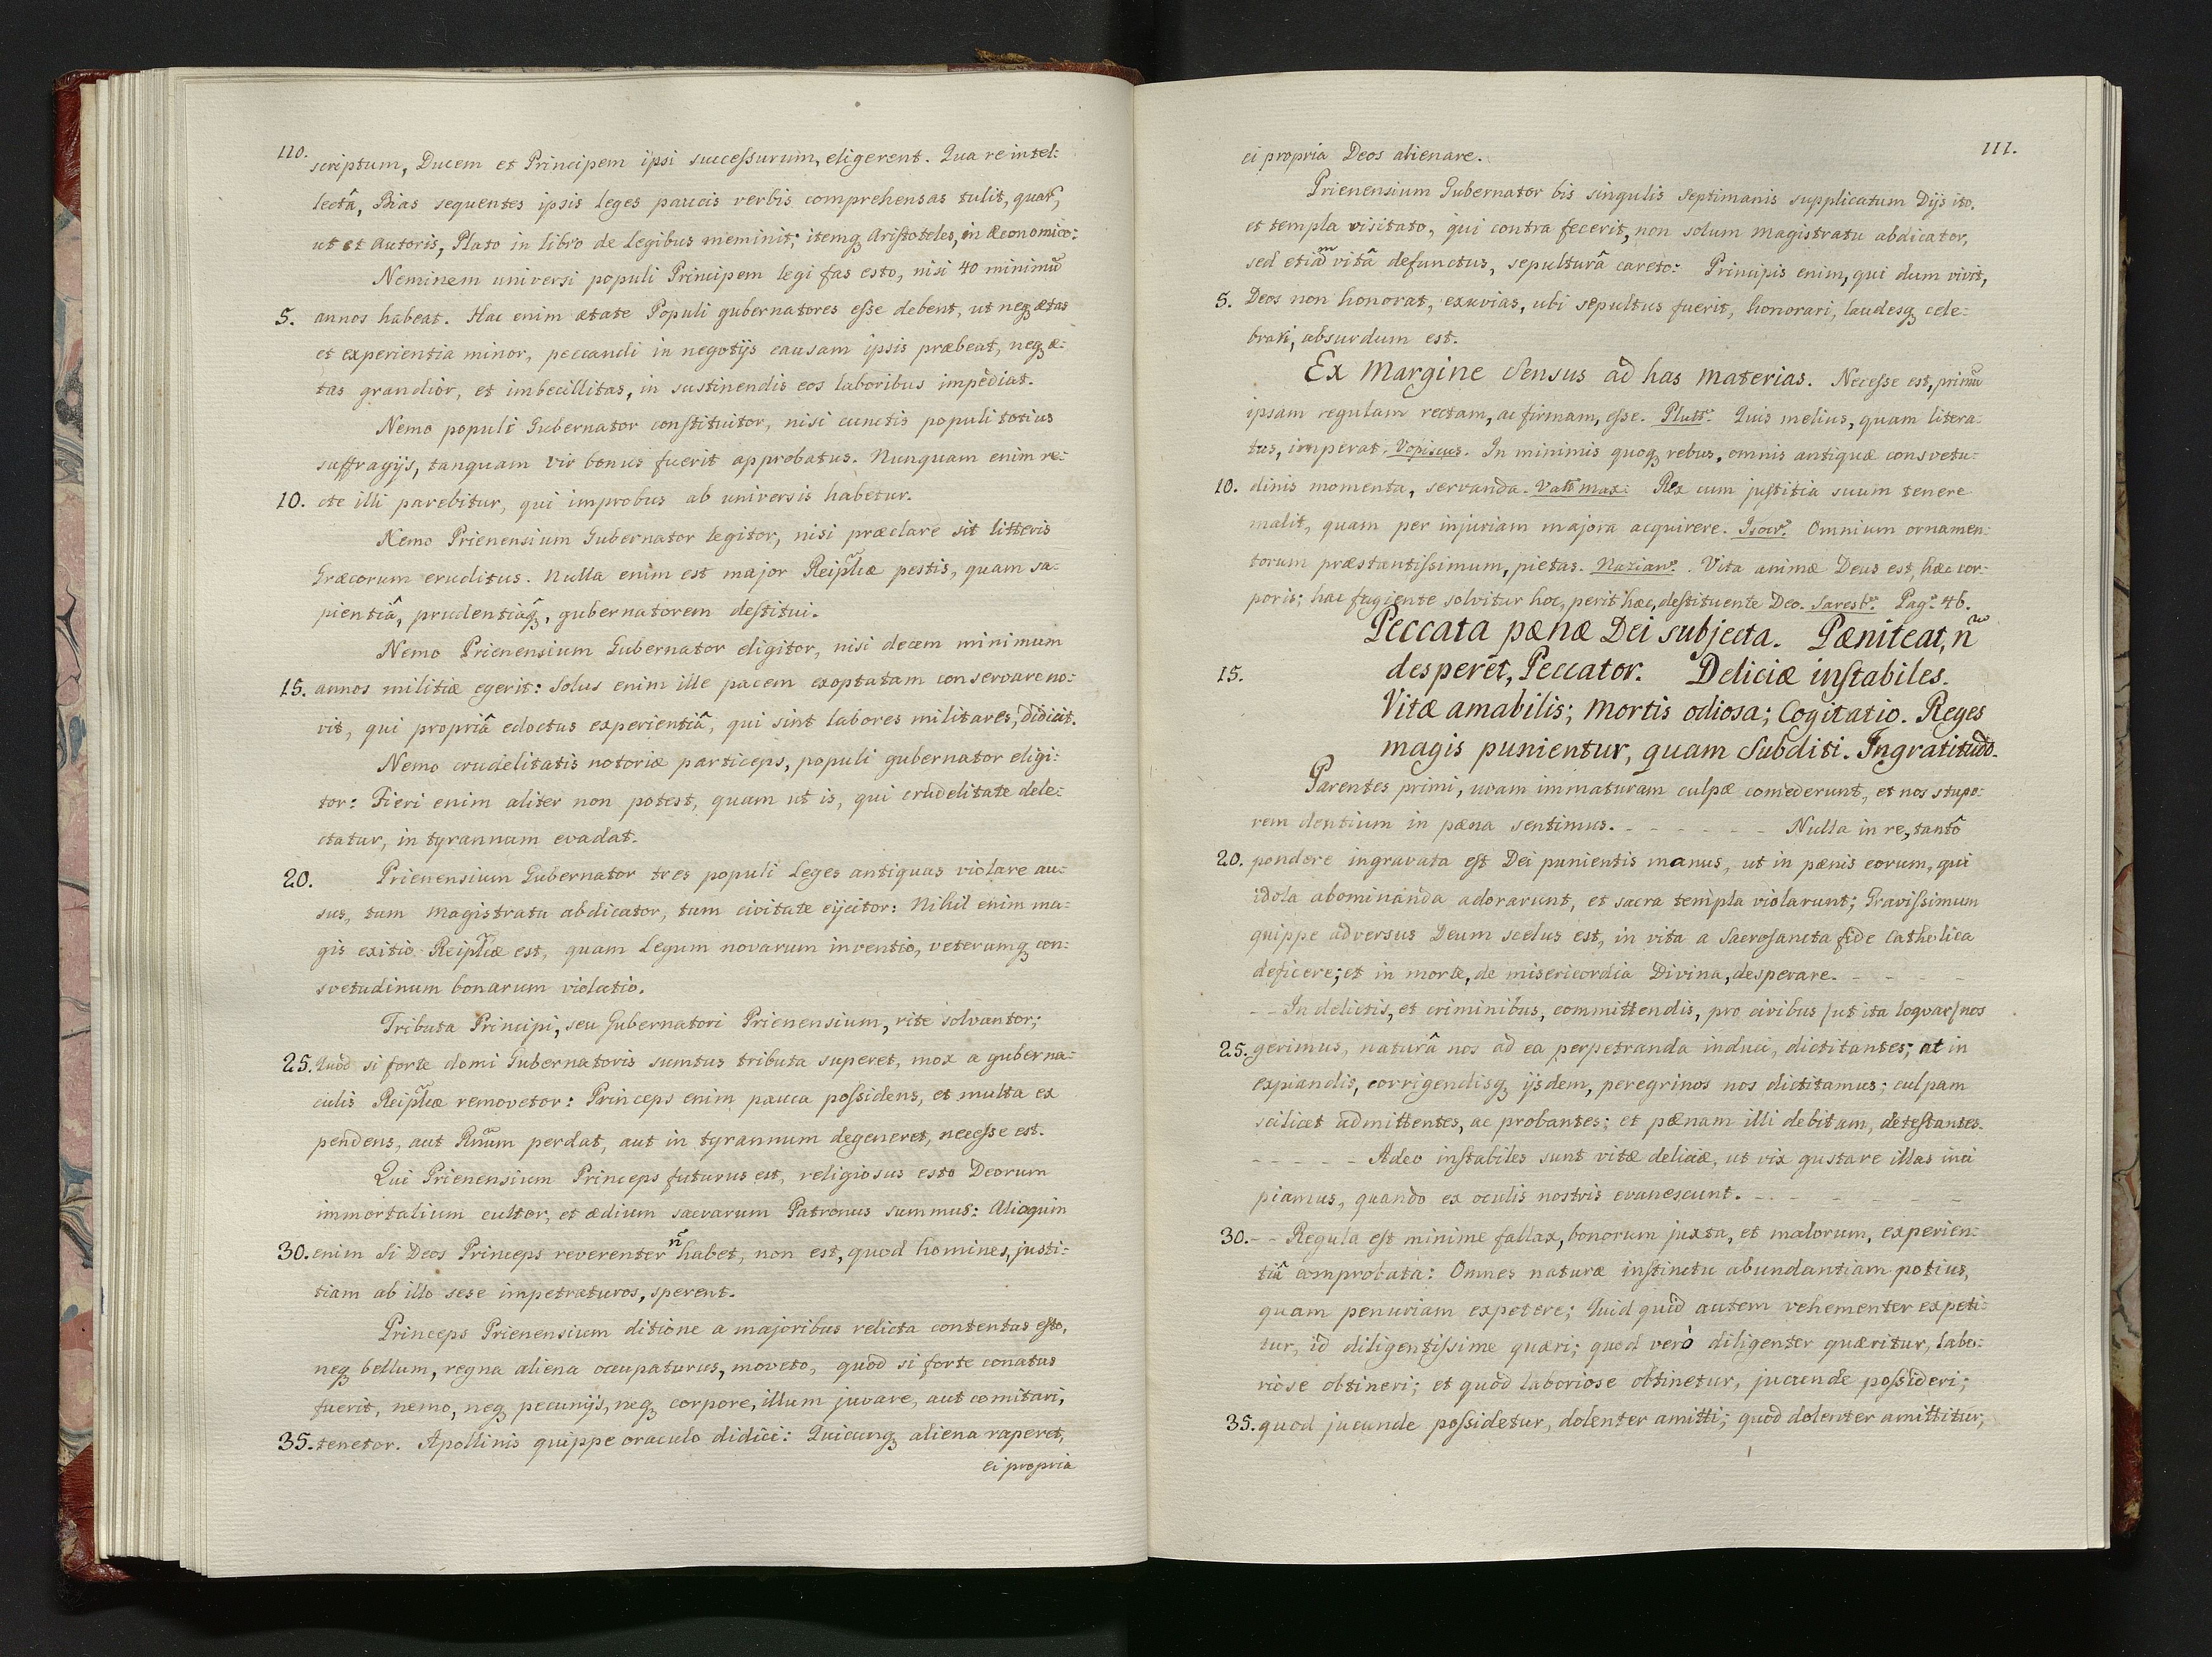 110.
scriptum, Ducem et Principem ipsi succeſsurum, eligerent. Qua re intel:
lectâ, Bias sequentes ipsis leges paucis verbis comprehensas tulit, quar̃,
ut et autoris, Plato in libro de Legibus meminit; itemq̨ Ariſtoteles, in Æconomico:
Neminem universi populi Principem legi fas esto, nisi 40 minimũ
5. annos habeat. Hac enim ætate Populi gubernatores eſse debent, ut neq̨ ætas
et experientia minor, peccandi in negotijs causam ipsis præbeat, neq̨ æ:
tas grandior, et imbecillitas, in sustinendis eos laboribus impediat.
Nemo populi Gubernator conſtituitor, nisi cunctis populi totius
suffragijs, tanquam vir bonus fuerit approbatus. Nunquam enim re:
10. cte illi parebitur, qui improbus ab universis habetur.
Nemo Prienensium Gubernator legitor, nisi præclare sit litteris
Græcorum eruditus. Nulla enim est major Reipl̃cæ pestis, quam sa:
pientiâ, prudentiâq̨, gubernatorem deſtitui.
Nemo Prienensium Gubernator eligitor, nisi decem minimum
15. annos militiæ egerit: Solus enim ille pacem exoptatam conservare no:
vit, qui propriâ edoctus experientiâ, qui sint labores militares, didicit.
Nemo crudelitatis notoriæ particeps, populi gubernator eligi:
tor: Fieri enim aliter non potest, quam ut is, qui crudelitate dele:
ctatur, in tyrannum evadat.
20. Prienensium Gubernator tres populi Leges antiquas violare au:
sus, tum magistratu abdicator, tum civitate eijcitor: Nihil enim ma:
gis exitio Reipl̃cæ est, quam Legum novarum inventio, veterumq̨ con:
svetudinum bonarum violatio.
Tributa Principi, seu Gubernatori Prienensium, rite solvantor;
25. Quod si forte domi Gubernatoris sumtus tributa superet, mox a guberna:
culis Reipl̃cæ removetor: Princeps enim pauca poſsidens, et multa ex
pendens, aut Rñum perdat, aut in tyrannum degeneret, neceſse est.
Qui Prienensium Princeps futurus est, religiosus esto Deorum
immortalium cultor, et ædium sacrarum Patronus summus: Alioquin
30. enim Si Deos Princeps reverenter ñ habet, non est, quod homines, justi:
tiam ab illo sese impetraturos, sperent.
Princeps Prienensium ditione a majoribus relicta contentus eſto,
neq̨ bellum, regna aliena occupaturus, moveto, quod si forte conatus
fuerit, nemo, neq̨ pecunijs, neq̨ corpore, illum juvare, aut comitari,
35. tenetor. Apollinis quippe oraculo didici: Quicunq̨ aliena raperet,
ei propria
111.
ei propria Deos alienare.
Prienensium Gubernator bis singulis Septimanis supplicatum Dijs ito,
et templa visitato, qui contra fecerit, non solum magistratu abdicator,
sed etiam vitâ defunctus, sepulturâ careto: Principis enim, qui dum vivit,
5. Deos non honorat, exuvias, ubi sepultus fuerit, honorari, laudesq̨ cele:
brari, absurdum est.
Ex Margine Sensus ad has materias. Neceſse est, primũ
ipsam regulam rectam, ac firmam, eſse. Plutt. Quis melius, quam litera:
tus, imperat. Vopiscus. In minimis quoq̨ rebus, omnis antiquæ consvetu:
10. dinis momenta, servanda. Vall Max: Rex cum juſtitia suum tenere
malit, quam per injuriam majora acquirere. Isocr. Omnium ornamen:
torum præstantiſsimum, pietas. Nazian. Vita animæ Deus est, hæc cor:
poris; hac fugiente solvitur hoc, perit hæc, deſtituente Deo. Saresb. Pag. 46.
Peccata pænæ Dei subjecta. Pæniteat, ñ
15. desperet, Peccator. Deliciæ inſtabiles.
Vitæ amabilis; Mortis odiosa; Cogitatio. Reges
magis punientur, quam Subditi. Ingratitudo.
Parentes primi, uvam immaturam culpæ comederunt, et nos stupo:
rem dentium in pæna sentimus. - - - - - - Nulla in re, tantô
20. pondere ingravata eſt Dei punientis manus, ut in pænis eorum, qui
idola abominanda adorarunt, et sacra templa violarunt; Graviſsimum
quippe adversus Deum scelus est, in vita a Sacroſancta fide Catholica
deficere; et in morte, de misericordia Divina, desperare. - - - -
- - In delictis, et criminibus, committendis, pro civibus /ut ita loqvar/ nos
25. gerimus, naturâ nos ad ea perpetranda induci, dictitantes; at in
expiandis, corrigendisq̨ ijsdem, peregrinos nos dictitamus; culpam
scilicet admittentes, ac probantes; et pænam illi debitam, deteſtantes.
- - - - - Adeo inſtabiles sunt vitæ deliciæ, ut vix gustare illas inci
piamus, quando ex oculis nostris evanescunt. - - - - - -
30. - - Regula eſt minime fallax, bonorum juxta, et malorum, experien:
tiâ comprobata: Omnes naturæ inſtinctu abundantiam potius,
quam penuriam expetere; Quid quid autem vehementer expeti:
tur, id diligentiſsime quæri; quod verò diligenter quæritur, labo:
riose obtineri; et quod laboriose obtinetur, jucunde poſsideri;
35. quod jucunde poſsidetur, dolenter amitti; quod dolenter amittitur,